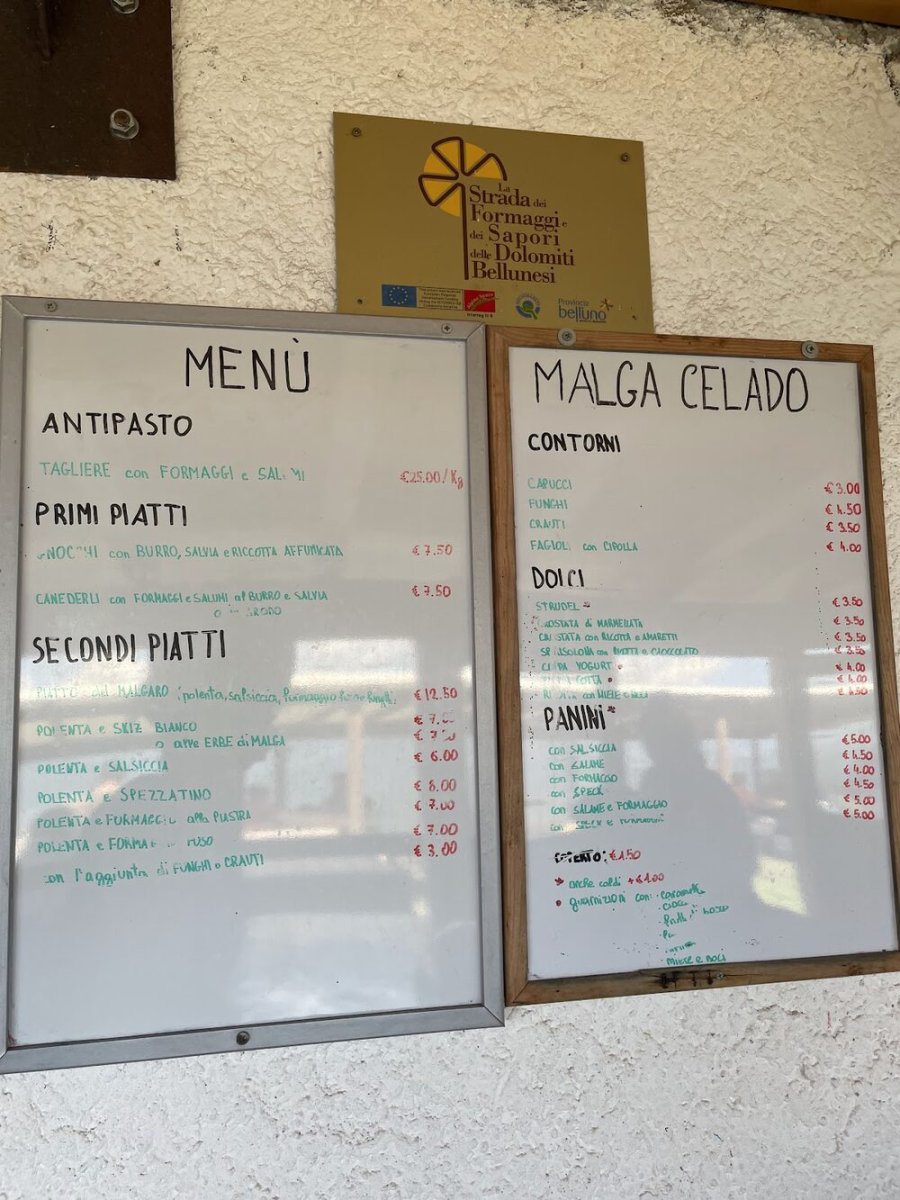 La
Strada dei
Formaggi e
dei Sapori
delle Dolomiti
Bellunesi
Provincia
belluno
MENÙ
ANTIPASTO
TAGLIERE con FORMAGGI e €25.00/Kg
PRIMI PIATTI
con BURRO, SALVIA e RICCOTTA AFFUMICATA € 7.50
CANEDERLI con FORMAGGI e SALUMI al BURRO e SALVIA € 7.50
SECONDI PIATTI
MALGARO (polenta, salsiccia, € 12.50
POLENTA e SKIZ BIANCO
o alle ERBE di MALGA
POLENTA e SALSICCIA € 6.00
POLENTA e SPEZZATINO € 8.00
POLENTA e alla PIASTRA € 7.00
POLENTA e € 7.00
con l'aggiunta di FUNGHI o CRAUTI € 3.00
MALGA CELADO
CONTORNI
CAPUCCI € 3.00
FUNGHI € 4.50
CRAUTI € 3.50
con CIPOLLA € 4.00
DOLCI
STRUDEL € 3.50
di MARMELLATA € 3.50
con RICOTTA e AMARETTI € 3.50
e CIOCCOLATO € 3.50
YOGURT € 4.00
€ 4.00
con MIELE e
PANINI*
con SALSICCIA €5.00
con SALAME €4.50
con FORMAGGIO €4.00
con SPECK €4.50
con SALAME e FORMAGGIO €5.00
con SPECK e €5.00
€1.50
* anche caldi +€1.00
• guarnizioni con:
MIELE e NOCI